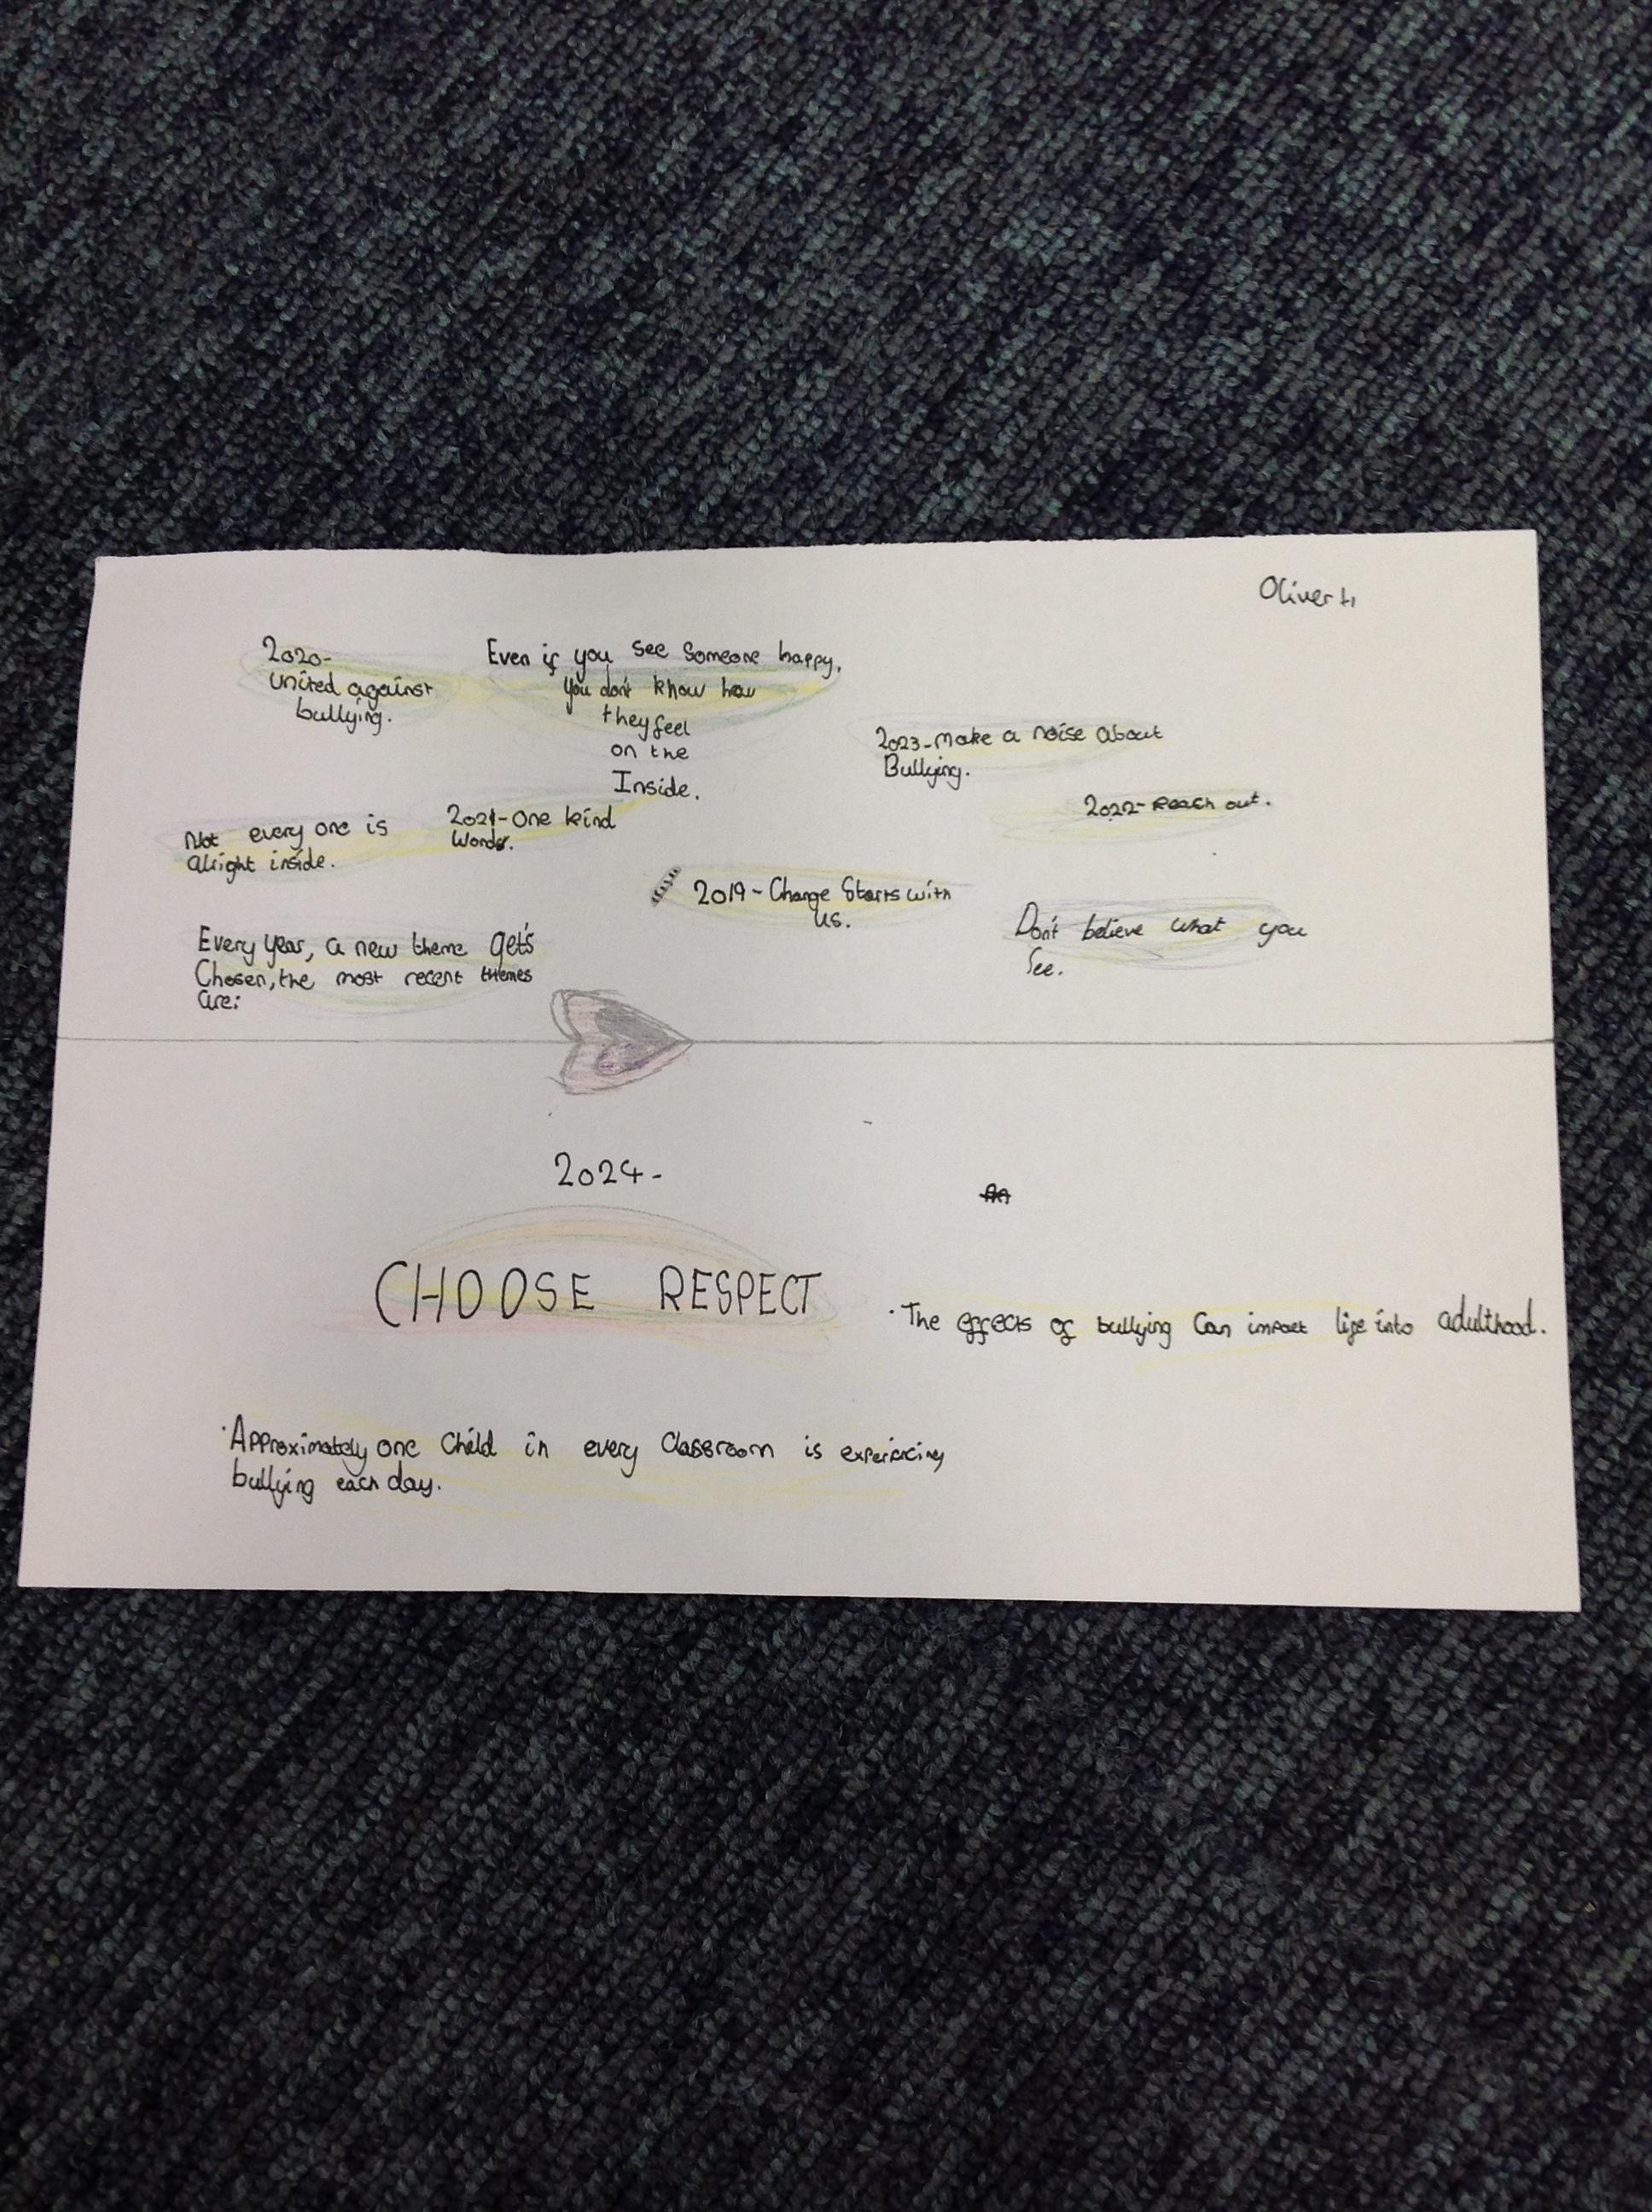 Oliver H
2020-
united against
bullying.
Even if you see someone happy,
you don't know how
they feel
on the
Inside.
2023-Make a noise About
Bullying.
2022- Reach out.
Not every one is
alright inside.
2021-One kind
Word.
2019-Change Starts with
us.
Don't believe what you
See.
Every year, a new theme get's
Chosen, the most recent themes
are:
2024-
CHOOSE RESPECT
·The effects of bullying Can impact life into adulthood.
·Approximately one Child in every Classroom is
bullying each day.